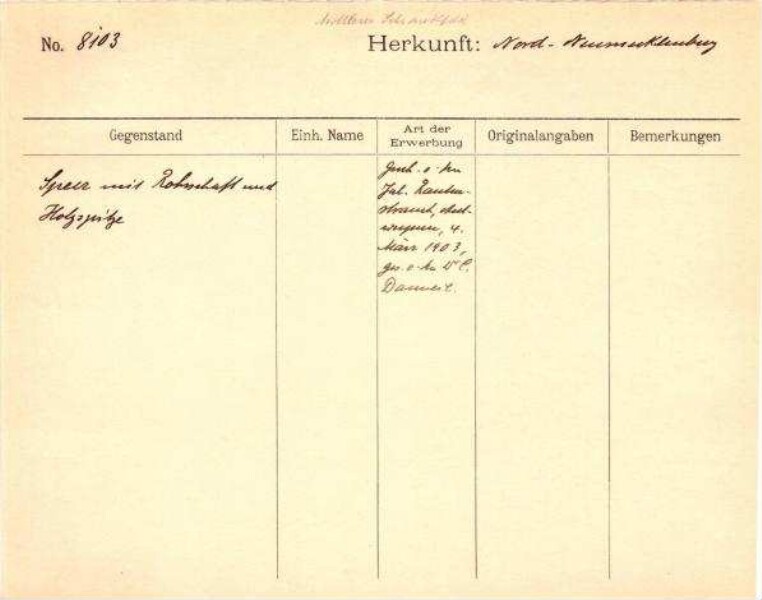 Mittlerer Schrank
No. 8103
Herkunft: Nord-Neumecklenburg
Gegenstand
Einh. Name
Art der
Erwerbung
Originalangaben
Bemerkungen
Speer mit Rohrschaft und
Holzspitze
Gesch. v. Hn
Jul. Rauten-
strauch, Ant-
werpen, 4.
März 1903,
ges. v. Hn Dr C.
Danneil.